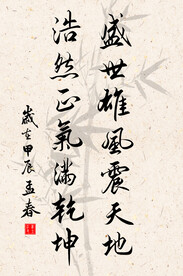 盛世雄風震天地
浩然正氣滿乾坤
歲在甲辰孟春